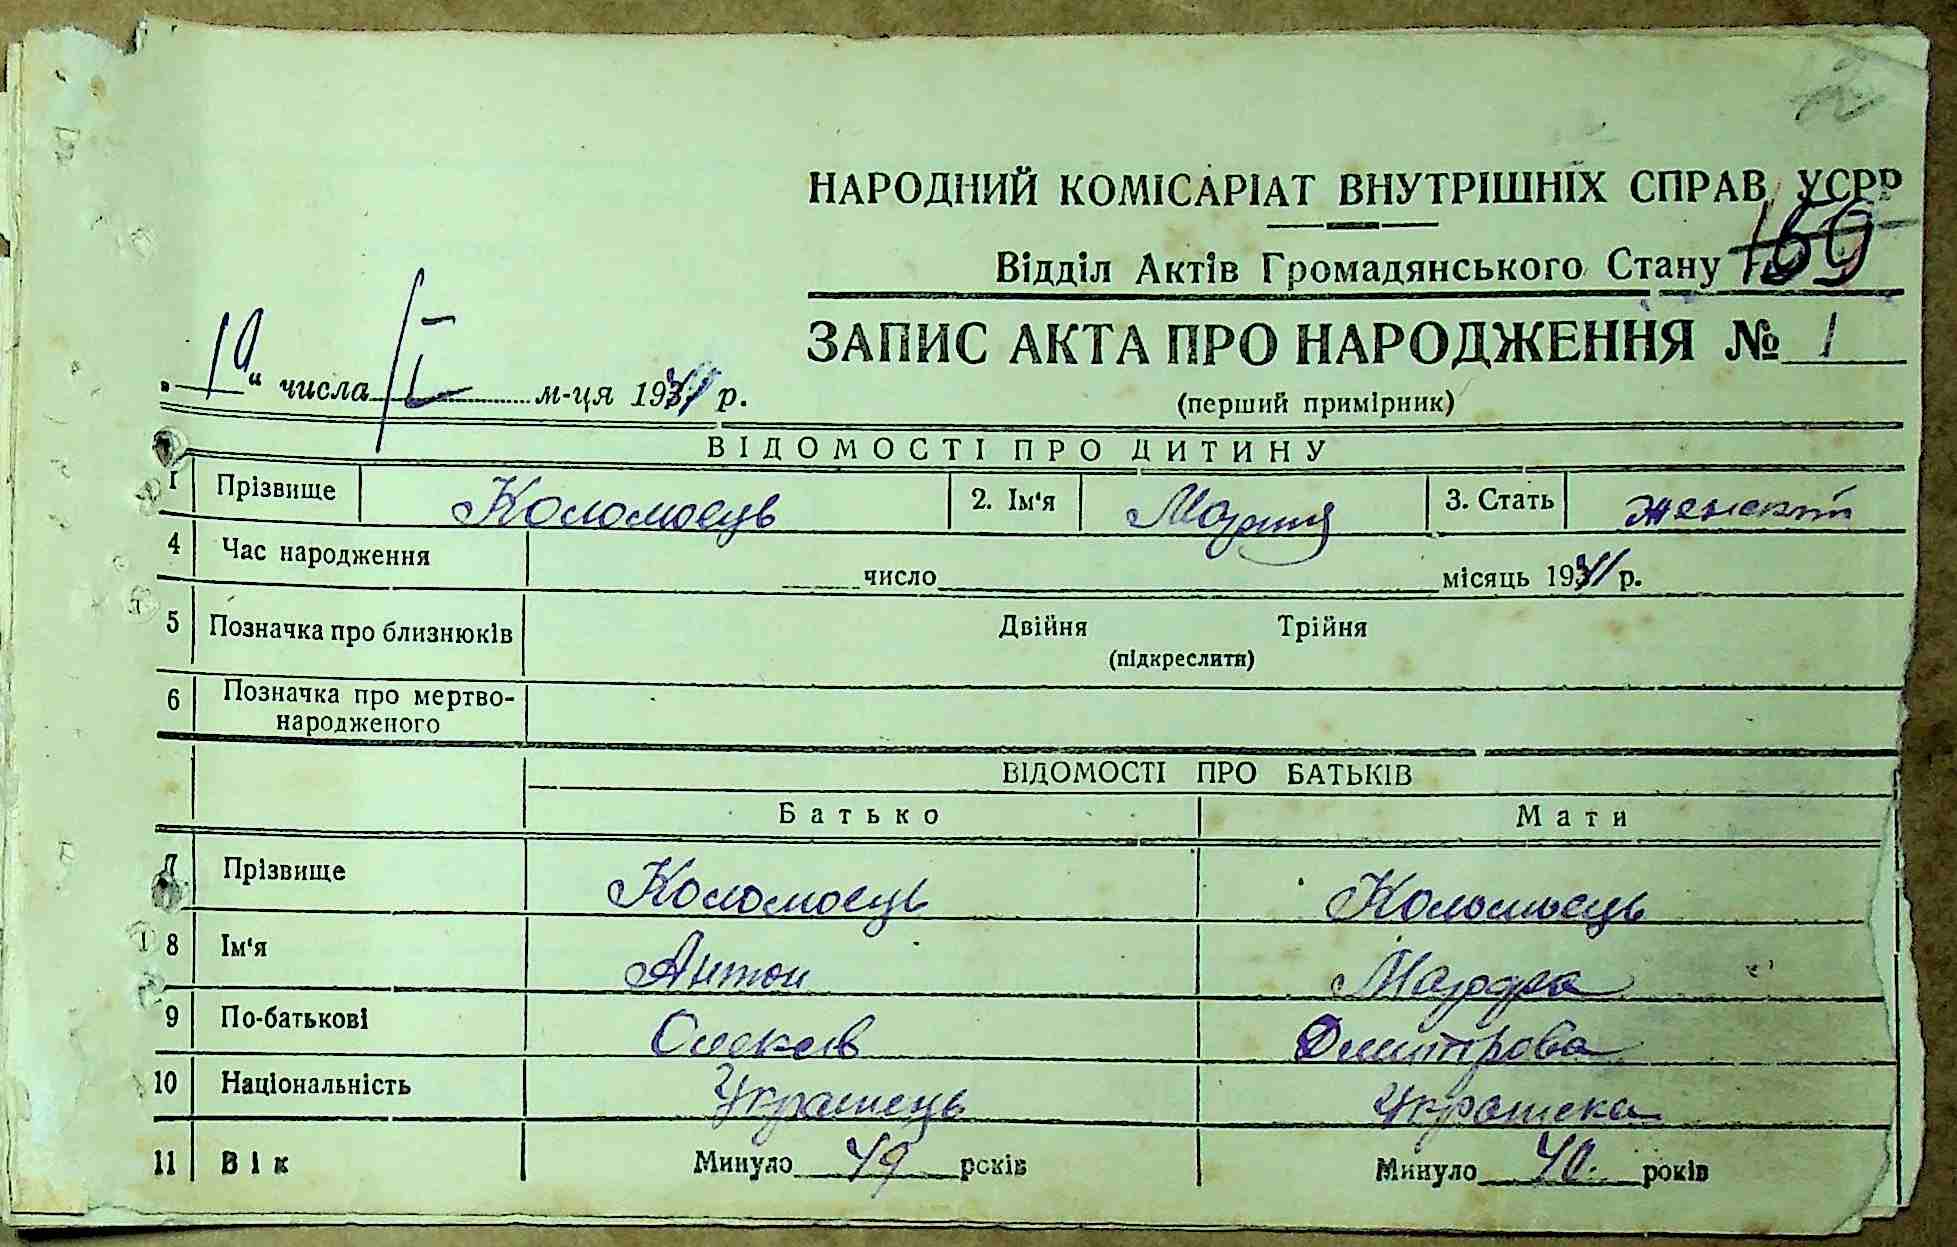 НАРОДНИЙ КОМІСАРІАТ ВНУТРІШНІХ СПРАВ УСРР
Відділ Актів Громадянського Стану 169
ЗАПИС АКТА ПРО НАРОДЖЕННЯ № 1
„19“ числа I м-ця 1941 р.
(перший примірник)
ВІДОМОСТІ ПРО ДИТИНУ
1 Прізвище Коломоєць 2. Ім'я Мария 3. Стать женский
4 Час народження число місяць 1941 р.
5 Позначка про близнюків Двійня Трійня
(підкреслити)
6 Позначка про мертво-
народженого
ВІДОМОСТІ ПРО БАТЬКІВ
Батько Мати
7 Прізвище Коломоєць Коломоєць
8 Ім'я Антон Марфа
9 По-батькові Олексів Дмитрова
10 Національність Українець Українка
11 Вік Минуло 49 років Минуло 40 років